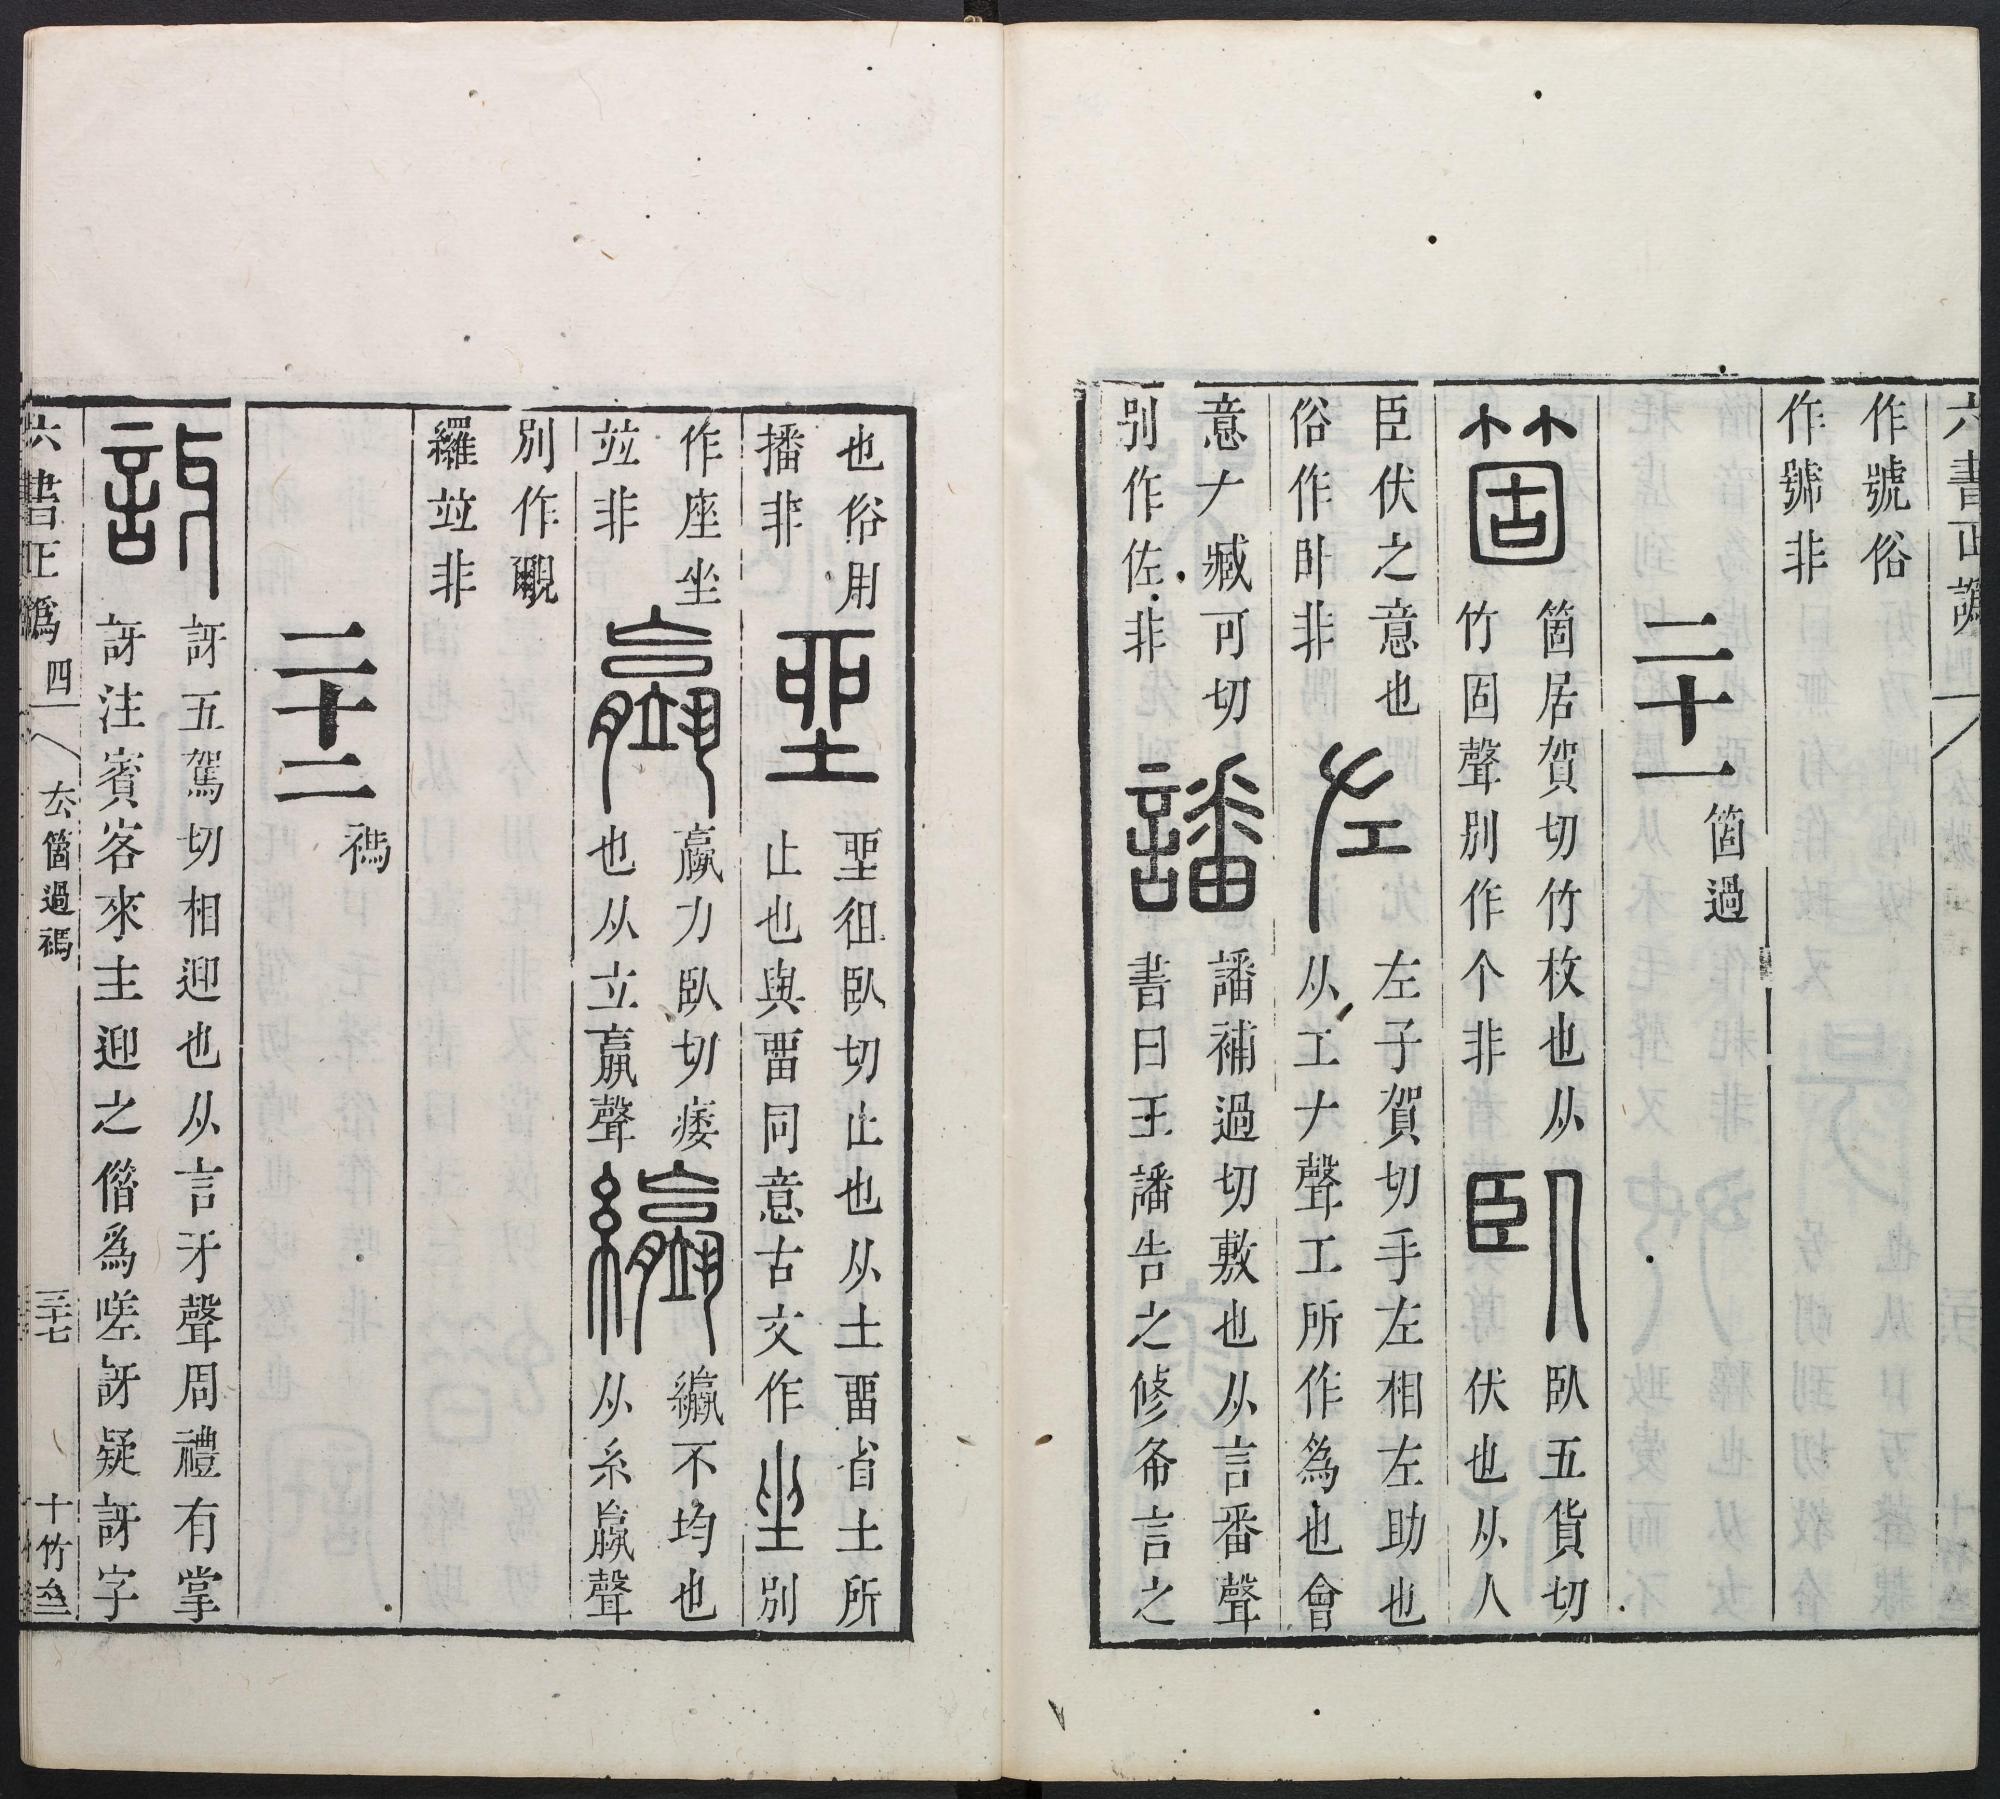 六書正譌
作號俗
作號非
二十一
箇過
箇
箇居賀切竹枚也从
竹固聲別作个非
臥
臥五貨切
伏也从人
臣伏之意也
俗作卧非
左
左子賀切手左相左助也
从工𠂇聲工所作為也會
意𠂇臧可切
別作佐非
譒
譒補過切敷也从言番聲
書曰王譒告之修斋言之
也俗用
播非
坐
𡋲徂臥切止也从土畱省土所
止也與畱同意古文作坐別
作座㘴
竝非
𧝹力臥切痿
也从立𣎆聲
不均也
从糸𣎆聲
別作覼
纙竝非
二十二
禡
訝
訝五駕切相迎也从言牙聲周禮有掌
訝注賓客來主迎之偕為嗟訝疑訝字
六書正譌 四 去箇過禡 三十七 十竹